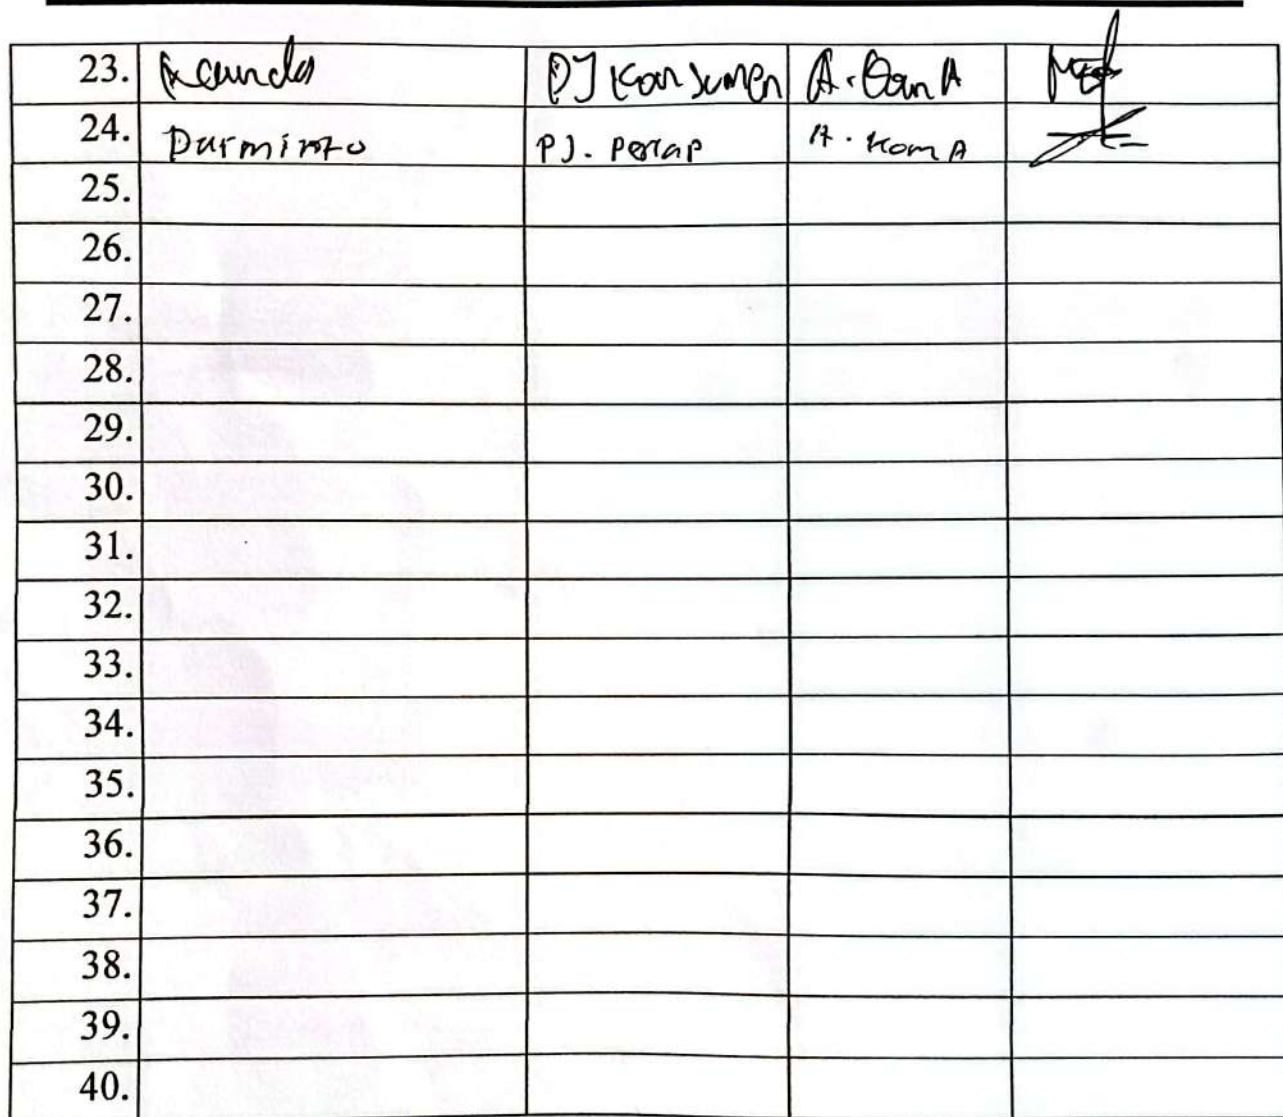 23. PJ Konsumen
24. Darminto PJ. Perlap A. Kom A
25.
26.
27.
28.
29.
30.
31.
32.
33.
34.
35.
36.
37.
38.
39.
40.